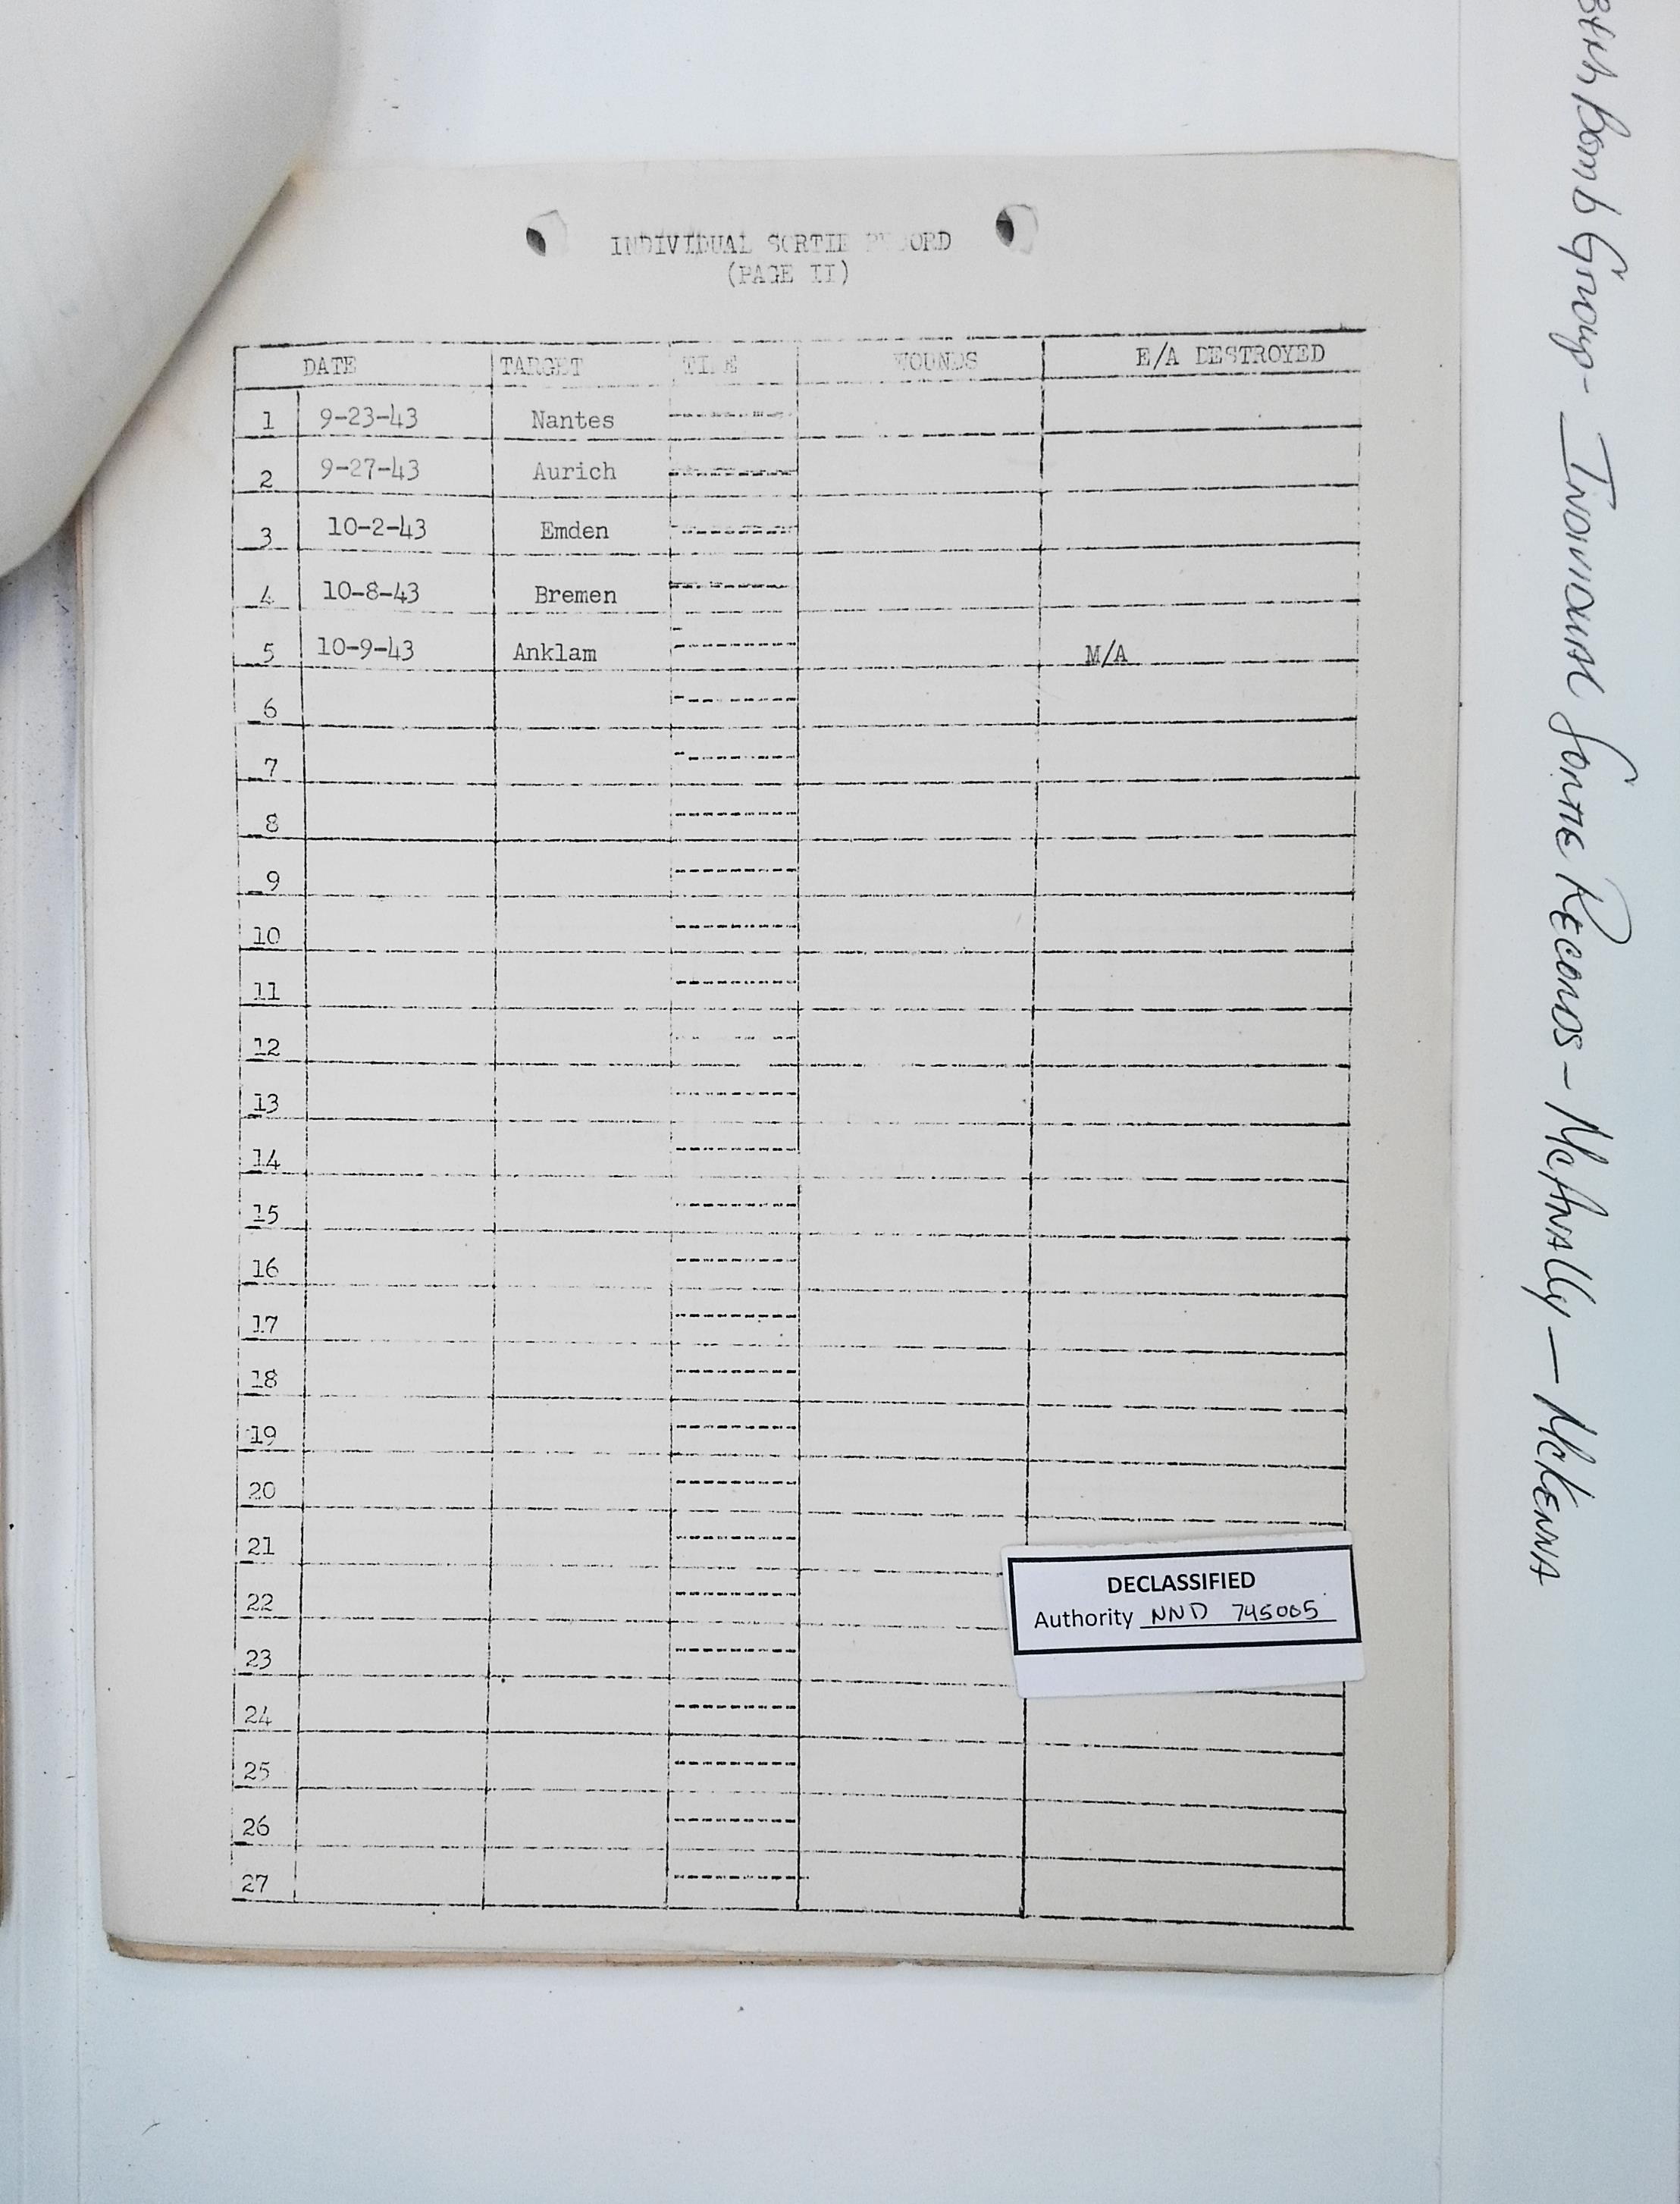 INDIVIDUAL SORTIE RECORD
(PAGE II)
DATE TARGET TIME WOUNDS E/A DESTROYED
1 9-23-43 Nantes
2 9-27-43 Aurich
3 10-2-43 Emden
4 10-8-43 Bremen
5 10-9-43 Anklam M/A
6
7
8
9
10
11
12
13
14
15
16
17
18
19
20
21
22
23
24
25
26
27
DECLASSIFIED
Authority NND 745005
Bomb Group - Individual Sortie Records - McAnally - McKenna